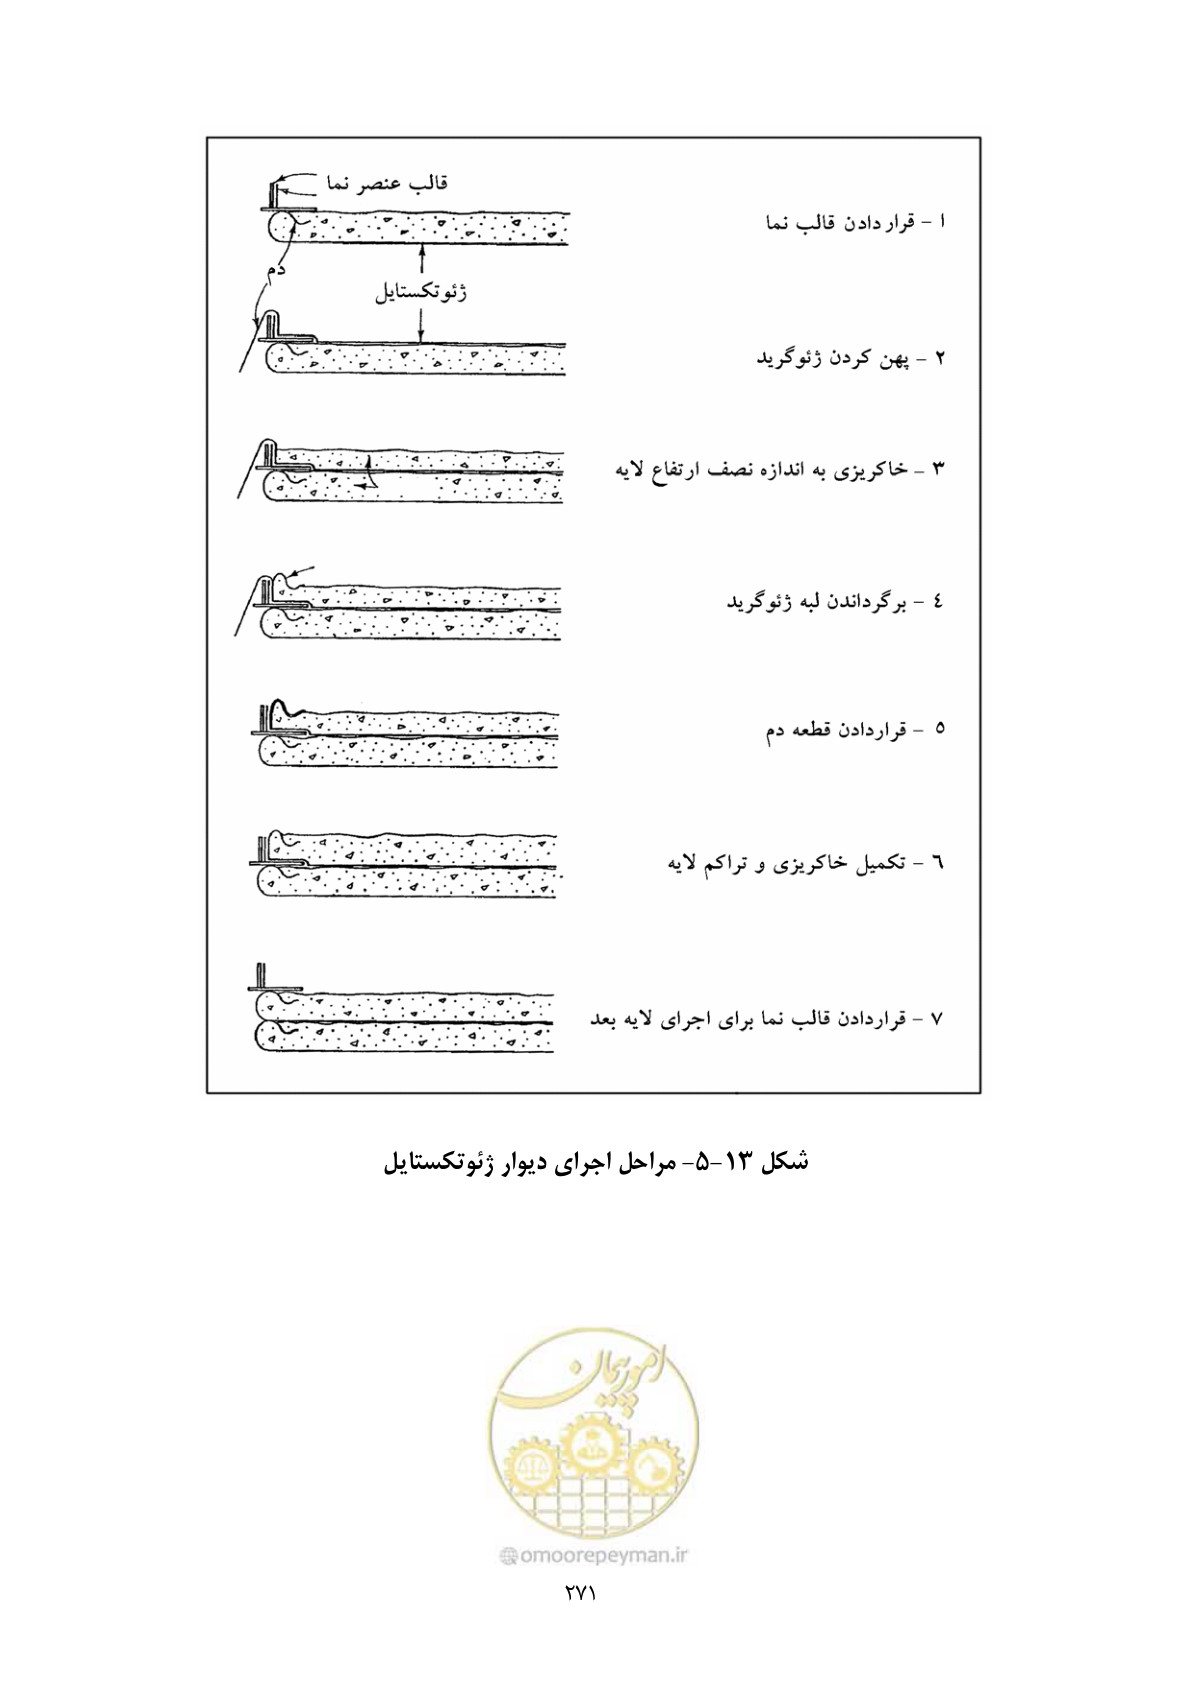 قالب عنصر نما
۱ - قرار دادن قالب نما
دم
ژئوتکستایل
۲ - پهن کردن ژئوگرید
۳ - خاکریزی به اندازه نصف ارتفاع لایه
٤ - برگرداندن لبه ژئوگرید
٥ - قراردادن قطعه دم
٦ - تکمیل خاکریزی و تراکم لایه
۷ - قراردادن قالب نما برای اجرای لایه بعد
شکل ۱۳-۵- مراحل اجرای دیوار ژئوتکستایل
امور پیمان
@omoorepeyman.ir
۲۷۱